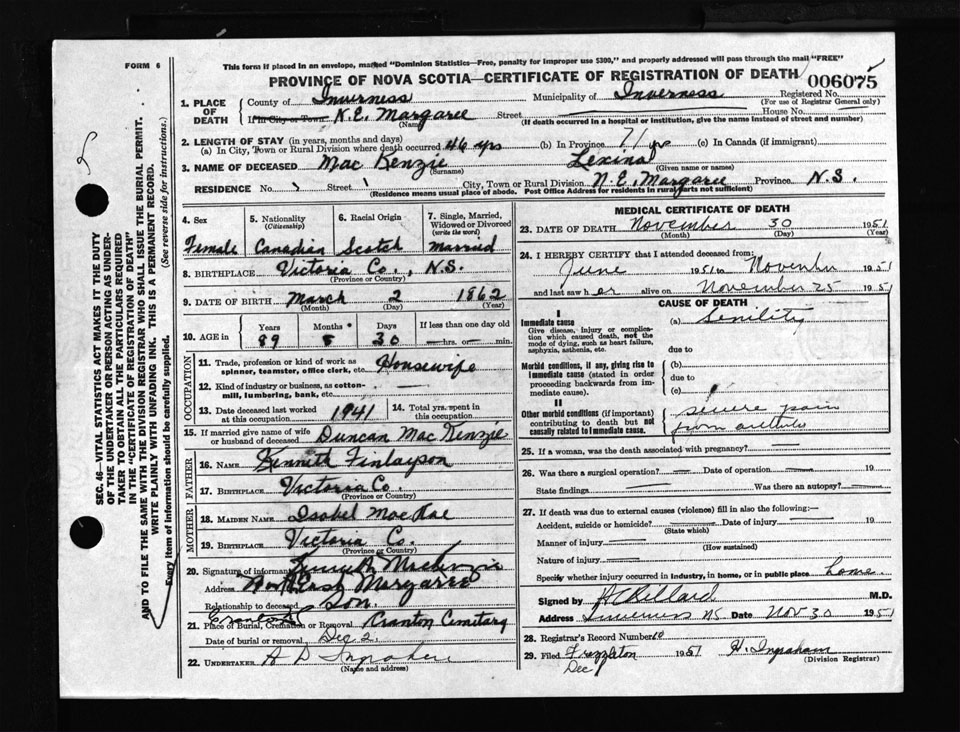 FORM 6
This form if placed in an envelope, marked "Dominion Statistics—Free, penalty for improper use $300," and properly addressed will pass through the mail "FREE"
PROVINCE OF NOVA SCOTIA—CERTIFICATE OF REGISTRATION OF DEATH
006075
1. PLACE OF DEATH
County of Inverness Municipality of Inverness Registered No.
(For use of Registrar General only)
If in City or Town N.E. Margaree Street House No.
(Name) (If death occurred in a hospital or institution, give the name instead of street and number)
2. LENGTH OF STAY (in years, months and days)
(a) In City, Town or Rural Division where death occurred 46 yrs (b) In Province 71 yrs (c) In Canada (if immigrant)
3. NAME OF DECEASED Mac Kenzie Lexina
(Surname) (Given name or names)
RESIDENCE No. Street City, Town or Rural Division N.E. Margaree Province N.S.
(Residence means usual place of abode. Post Office Address for residents in rural parts not sufficient)
4. Sex 5. Nationality (Citizenship) 6. Racial Origin 7. Single, Married, Widowed or Divorced (write the word)
Female Canadian Scotch Married
8. BIRTHPLACE Victoria Co., N.S.
(Province or Country)
9. DATE OF BIRTH March 2 1862
(Month) (Day) (Year)
10. AGE Years Months Days If less than one day old
89 8 30 hrs. or min.
OCCUPATION
11. Trade, profession or kind of work as spinner, teamster, office clerk, etc. Housewife
12. Kind of industry or business, as cotton-mill, lumbering, bank, etc. —
13. Date deceased last worked at this occupation 1941 14. Total yrs. spent in this occupation
15. If married give name of wife or husband of deceased Duncan Mac Kenzie
FATHER
16. NAME Kenneth Finlayson
17. BIRTHPLACE Victoria Co.
(Province or Country)
MOTHER
18. MAIDEN NAME Isabel MacRae
19. BIRTHPLACE Victoria Co.
(Province or Country)
20. Signature of informant Kenneth Mackenzie
Address North East Margaree
Relationship to deceased Son.
21. Place of Burial, Cremation or Removal Cranton Cemitary
Date of burial or removal Dec 2
22. UNDERTAKER A D
(Name and address)
MEDICAL CERTIFICATE OF DEATH
23. DATE OF DEATH November 30 1951
(Month) (Day) (Year)
24. I HEREBY CERTIFY that I attended deceased from:
June 1951 to November 1951
and last saw her alive on November 25 1951
CAUSE OF DEATH
I
Immediate cause (a) Senility
Give disease, injury or complication which caused death, not the mode of dying, such as heart failure, asphyxia, asthenia, etc.
due to
Morbid conditions, if any, giving rise to immediate cause (stated in order proceeding backwards from immediate cause).
(b)
due to
(c)
II
Other morbid conditions (if important) contributing to death but not causally related to immediate cause.
severe pain
from
25. If a woman, was the death associated with pregnancy?
26. Was there a surgical operation? — Date of operation — 19
State findings — Was there an autopsy? —
27. If death was due to external causes (violence) fill in also the following:—
Accident, suicide or homicide? Date of injury 19
(State which)
Manner of injury
(How sustained)
Nature of injury
Specify whether injury occurred in industry, in home, or in public place home
Signed by M.D.
Address Inverness NS Date Nov 30 1951
28. Registrar's Record Number
29. Filed Frizzleton 1951 H. Ingraham
Dec (Division Registrar)
SEC. 46—VITAL STATISTICS ACT MAKES IT THE DUTY
OF THE UNDERTAKER OR PERSON ACTING AS UNDER-
TAKER TO OBTAIN ALL THE PARTICULARS REQUIRED
IN THE "CERTIFICATE OF REGISTRATION OF DEATH"
AND TO FILE THE SAME WITH THE DIVISION REGISTRAR WHO SHALL ISSUE THE BURIAL PERMIT.
WRITE PLAINLY WITH UNFADING INK. THIS IS A PERMANENT RECORD.
Every item of information should be carefully supplied. (See reverse side for instructions.)